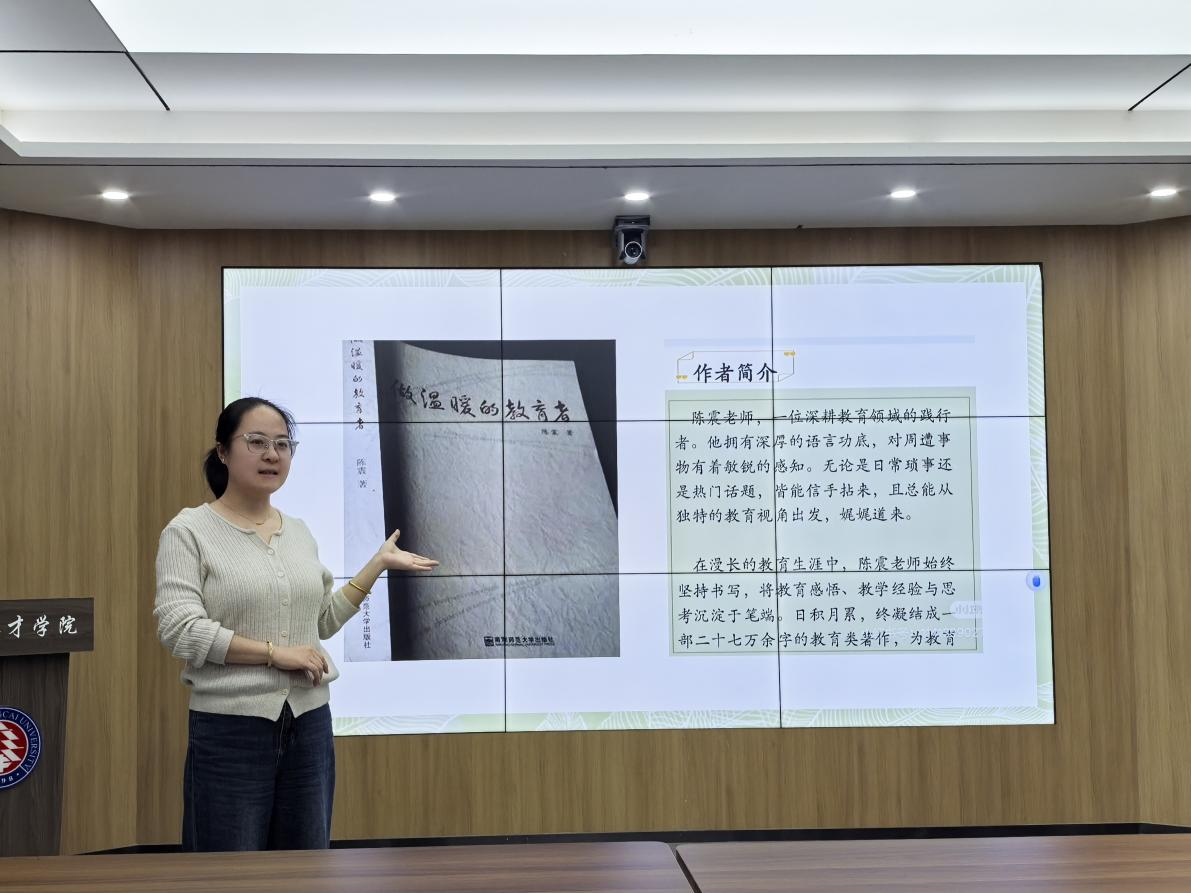 做温暖的教育者
陈震 著
南京师范大学出版社
做温暖的教育者
陈震 著
范大学出版社
作者简介
陈震老师，一位深耕教育领域的践行
者。他拥有深厚的语言功底，对周遭事
物有着敏锐的感知。无论是日常琐事还
是热门话题，皆能信手拈来，且总能从
独特的教育视角出发，娓娓道来。
在漫长的教育生涯中，陈震老师始终
坚持书写，将教育感悟、教学经验与思
考沉淀于笔端。日积月累，终凝结成一
部二十七万余字的教育类著作，为教育
才学院
NCAI UNIVERSITY